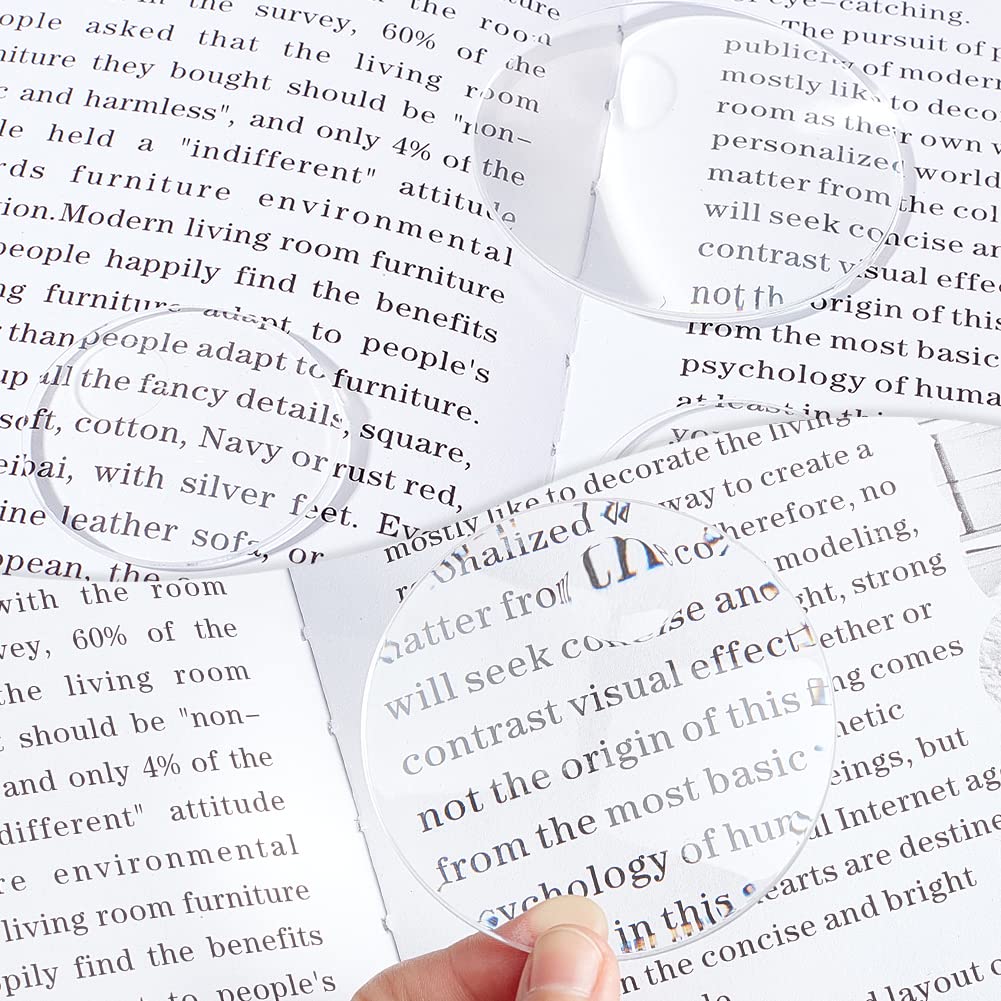 the survey, 60% of the room
people asked that the living room
furniture they bought should be "non-
and harmless", and only 4% of the
held a "indifferent" attitude
furniture environmental
Modern living room furniture
people happily find the benefits
furniture adapt to people's
than people adapt to furniture.
up all the fancy details, square,
soft, cotton, Navy or rust red,
with silver feet.
leather sofa, or
the
eye-catching.
The pursuit of
publicity of modern
mostly like to deco
room as their own
personalized world
matter from the col
will seek concise an
contrast visual effe
not th origin of this
from the most basic
psychology of huma
at least in thi
with the room
60% of the
the living room
should be "non-
and only 4% of the
attitude
environmental
living room furniture
find the benefits
to people's
mostly like to decorate the living
way to create a
onalized
deco Therefore, no
matter from modeling,
will seek concise and strong
contrast visual effect ether or
not the origin of this comes
from the most basic
psychology of hum eings, but
in this Internet age
hearts are destine
in the concise and bright
and layout